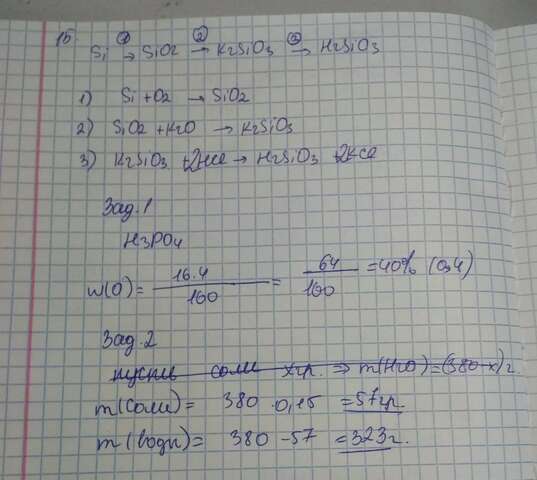 15.
Si ①→ SiO2 ②→ K2SiO3 ③→ H2SiO3
1) Si + O2 → SiO2
2) SiO2 + K2O → K2SiO3
3) K2SiO3 + 2HCl → H2SiO3 + 2KCl
Зад. 1
H3PO4
w(O) = 16·4 / 160 = 64 / 160 = 40% (0,4)
Зад. 2
пусть соли x гр. ⇒ m(H2O) = (380-x) г.
m(соли) = 380 · 0,15 = 57 гр.
m(воды) = 380 - 57 = 323 г.